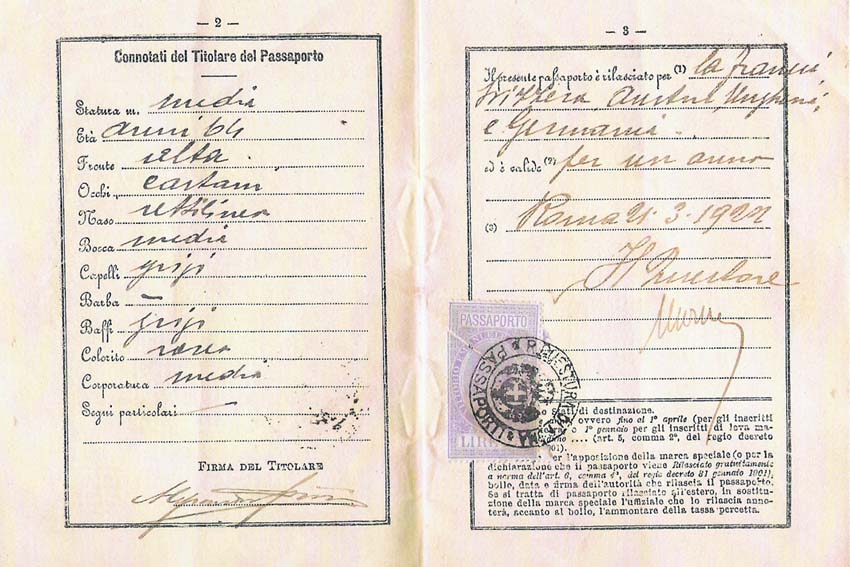 — 2 —
Connotati del Titolare del Passaporto
Statura m. media
Età anni 64
Fronte alta
Occhi castani
Naso rettilineo
Bocca media
Capelli grigi
Barba —
Baffi grigi
Colorito roseo
Corporatura media
Segni particolari —
FIRMA DEL TITOLARE
— 3 —
Il presente passaporto è rilasciato per (1) la Francia
Svizzera, Austria Ungheria,
e Germania
ed è valido (2) per un anno
(3) Roma 21-3-1922
Il Questore
PASSAPORTO
R. QUESTURA DI ROMA
PASSAPORTI
LIRE
Stati di destinazione.
ovvero fino al 1° aprile (per gli inscritti
1° gennaio per gli inscritti di leva ma-
(art. 5, comma 2°, del regio decreto
1901).
per l'apposizione della marca speciale (o per la
dichiarazione che il passaporto viene Rilasciato gratuitamente
a norma dell'art. 6, comma 4°, del regio decreto 31 gennaio 1901),
bollo, data e firma dell'autorità che rilascia il passaporto.
Se si tratta di passaporto rilasciato all'estero, in sostitu-
zione della marca speciale l'uffiziale che lo rilascia anno-
terà, accanto al bollo, l'ammontare della tassa percetta.